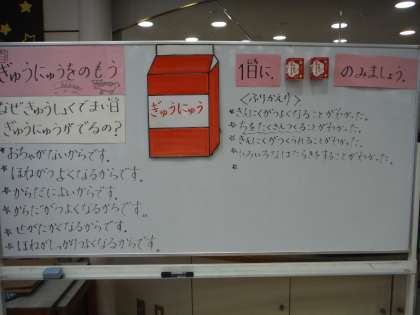 ぎゅうにゅうをのもう
なぜきゅうしょくでまい日
ぎゅうにゅうがでるの?
* おちゃがないからです。
* ほねがつよくなるからです。
* からだによいからです。
* からだがつよくなるからです。
* せがたかくなるからです。
* ほねがしっかりつよくなるからです。
ぎゅうにゅう
1日に、
のみましょう。
<ふりかえり>
* きんにくがつよくなることがわかった。
* ちをたくさんつくることがわかった。
* きんにくがつくられることがわかった。
* いろいろなはたらきをすることがわかった。
*